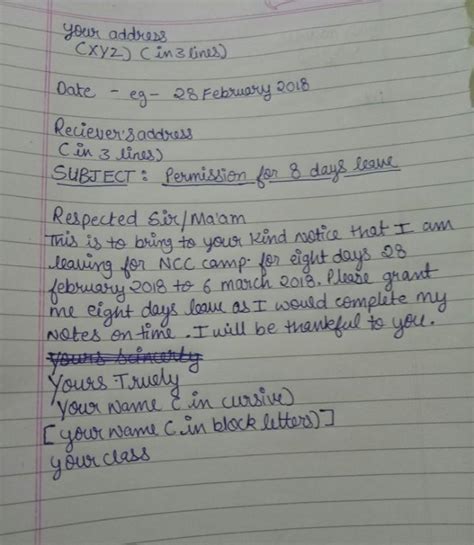 your address
(XYZ) (in 3 lines)
Date - eg - 28 February 2018
Reciever's address
(in 3 lines)
SUBJECT : Permission for 8 days leave
Respected Sir/Ma'am
This is to bring to your kind notice that I am
leaving for NCC camp. for eight days 28
february 2018 to 6 march 2018. Please grant
me eight days leave as I would complete my
notes on time. I will be thankful to you.
yours Scincerty
Yours Truely
your name (.in cursive)
[your name (.in block letters)]
your class